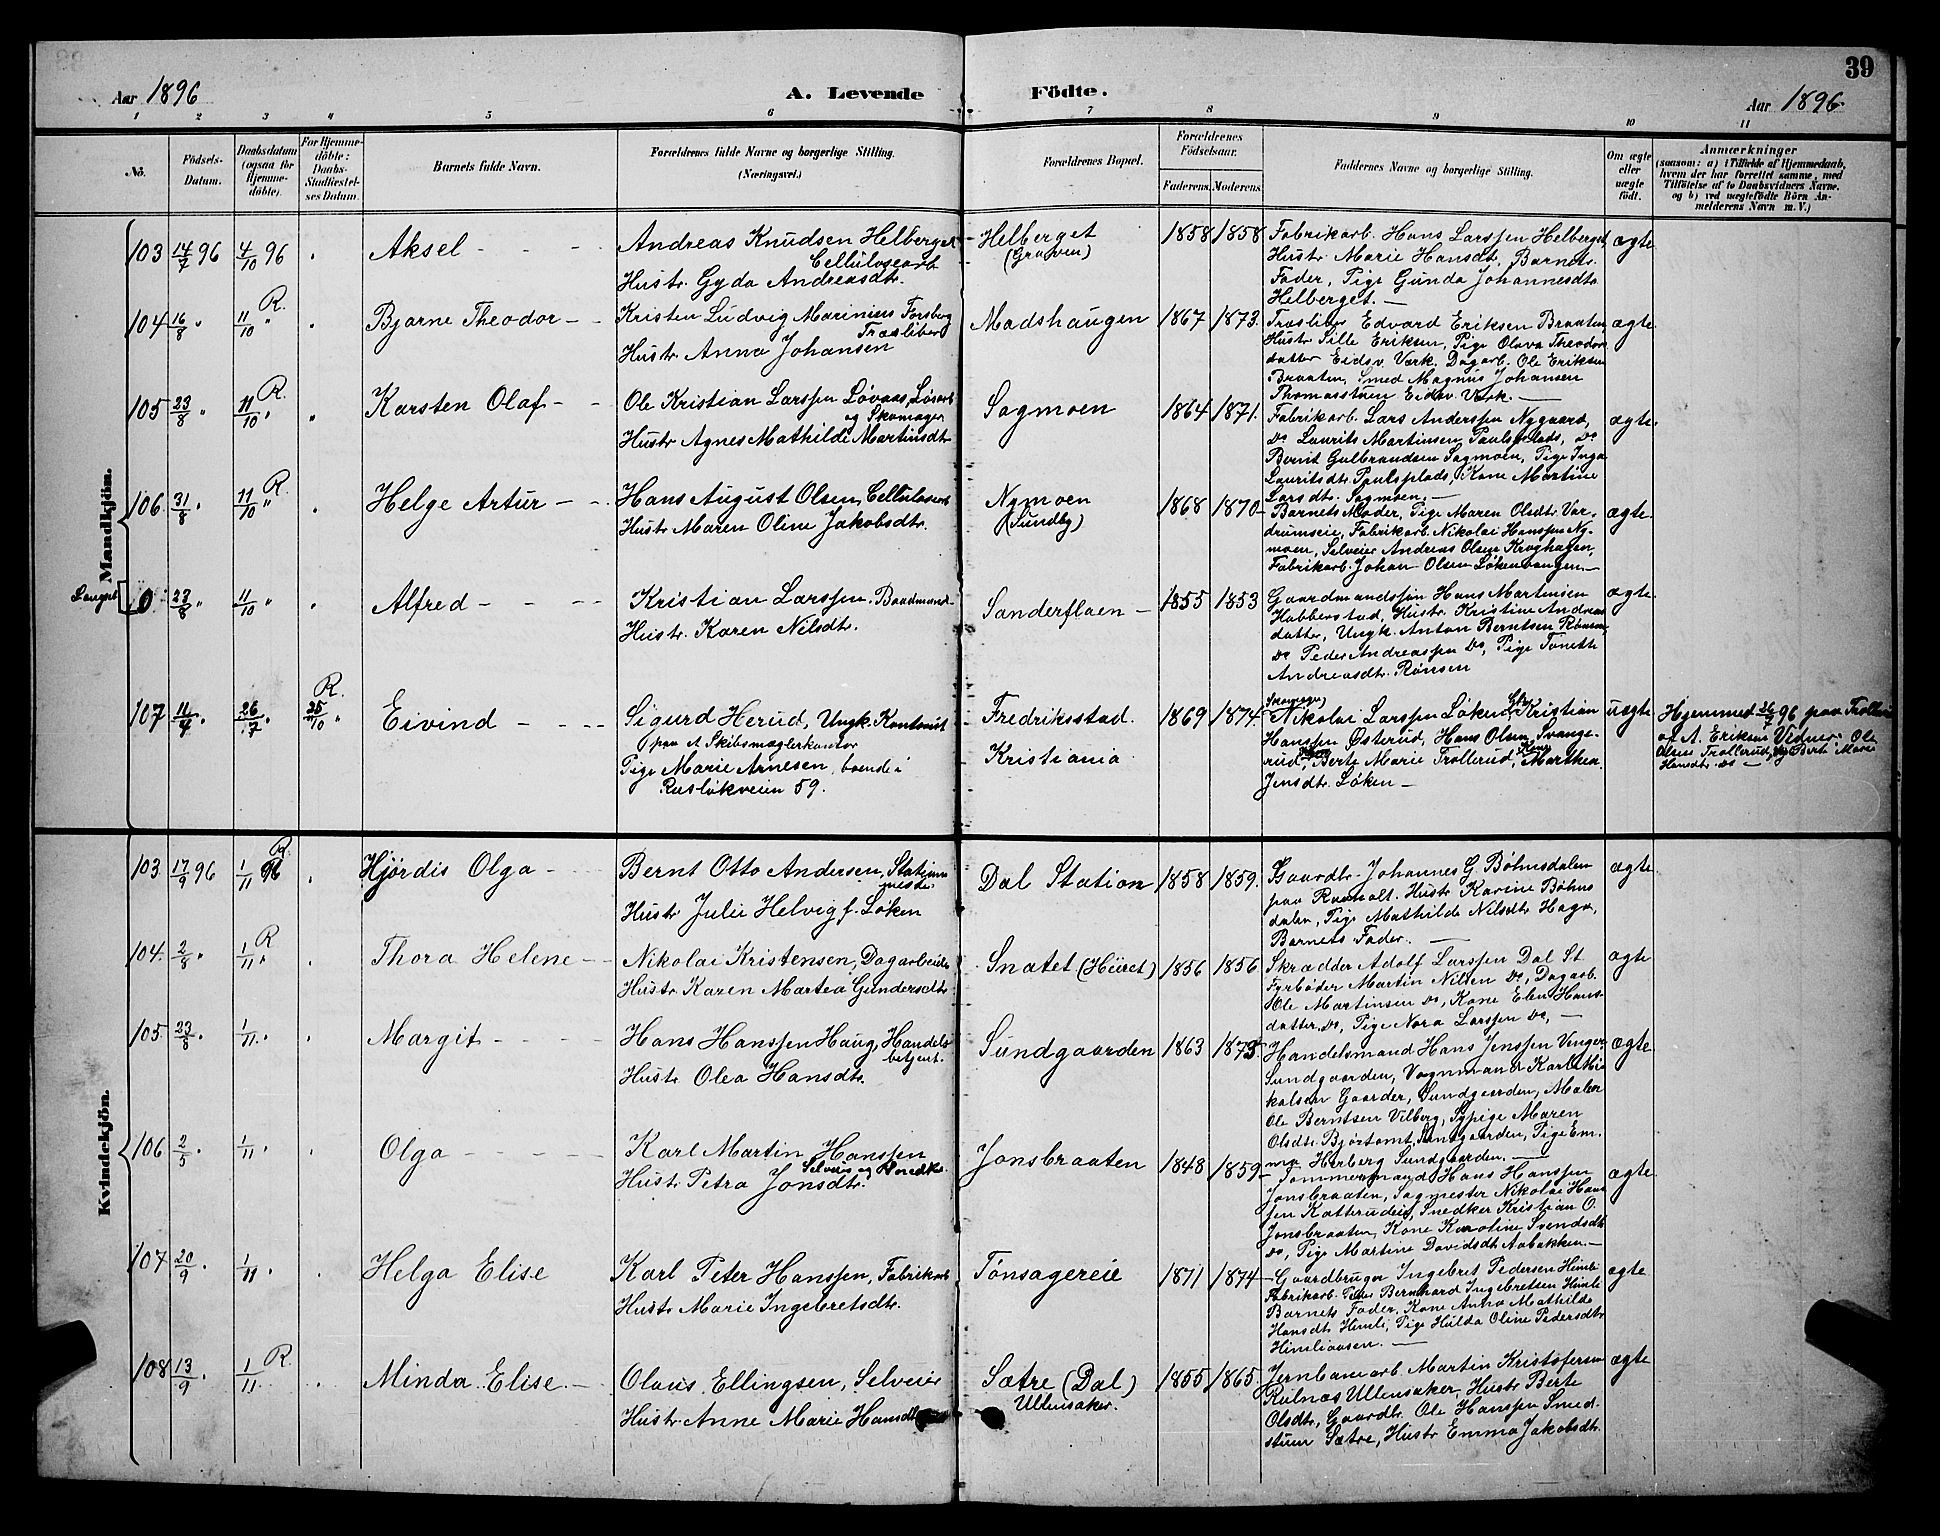 39
Aar 1896 A. Levende Födte. Aar 1896
1 2 3 4 5 6 7 8 9 10 11
No. Födsels-Datum. Daabsdatum (ogsaa for Hjemme-döbte). For Hjemme-döbte: Daabs-Stadfæstel-ses Datum. Barnets fulde Navn. Forældrenes fulde Navne og borgerlige Stilling. (Næringsvei.) Forældrenes Bopæl. Forældrenes Födselsaar. Faderens. Moderens. Faddernes Navne og borgerlige Stilling. Om ægte eller uægte født. Anmærkninger (saasom: a) i Tilfælde af Hjemmedaab, hvem der har forrettet samme, med Tilföielse af to Daabsvidners Navne, og b) ved uægtefödte Börn An-melderens Navn m. V.)
Mandkjön.
103 14/7 96 4/10 96 Aksel - - -
Andreas Knudsen Helberget
Cellulosearb
Hustr. Gyda Andreasdtr.
Helberget
(Graven)
1858 1858
Fabrikarb. Hans Larssen Helberget,
Hustr Marie Hansdt, Barnets
Fader, Pige Gunda Johannesdtr
Helberget. -
ægte
104 16/8 " 11/10 " R. Bjarne Theodor - -
Kristen Ludvig Marinius Forsberg
Træsliber
Hustr Anna Johansen
Madshaugen 1867 1873.
Træsliber Edvard Eriksen Braaten,
Hustr Sille Eriksen, Pige Olava Theodor
datter Eidsv. Værk. Dagarb. Ole Eriksen
Braaten, Smed Magnus Johansen
Thomasstuen Eidsv. Værk. -
ægte.
105 23/8 " 11/10 " R. Karsten Olaf - -
Ole Kristian Larssen Løvaas, Løsarb
og Skomager
Hustr Agnes Mathilde Martinsdtr
Sagmoen 1864 1871.
Fabrikarb. Lars Anderssen Nygaard,
Do Laurits Martinsen Paulsplads, Do
Bernt Gulbrandsen Sagmoen, Pige Inga
Lauritsdtr Paulsplads, Kone Martine
Larsdtr. Sagmoen. -
ægte.
106 31/8 " 11/10 " R. Helge Artur - -
Hans August Olsen, Cellulosearb
Hustr Maren Oline Jakobsdtr.
Nymoen
(Sundby)
1868 1870
Barnets Moder, Pige Maren Olsdtr. Var-
drumseie, Fabrikarb. Nikolai Hanssen Ny-
moen, Selveier Andreas Olsen Kroghagen,
Fabrikarb. Johan Olsen Løkenvangen. -
ægte.
0 23/8 " 11/10 " Alfred - - - -
Kristian Larssen, Baadmand
Hustr. Karen Nilsdtr.
Sanderfloen - 1855 1853
Gaardmandssøn Hans Martinsen
Habberstad, Hustr. Kristine Andreas
datter, Ungk. Anton Berntsen Rønsen,
Do Peder Andreassen Do, Pige Tonette
Andreasdtr. Rønsen
ægte.
107 11/4 " 26/7 " 25/10 " R. Eivind - - -
Sigurd Herud, Ungk. Kontorist
paa et Skibsmæglerkontor
Pige Marie Arnesen, boende i
Ruseløkveien 59.
Fredriksstad.
Kristiania
1869 1874.
Nikolai Larssen Løken, Kristian
Hanssen Østerud, Hans Olsen Svange-
rud, Berte Marie Trollerud, Marthea
Jensdtr. Løken -
uægte
Hjemmed 26/7 96 paa Trollerud
af A. Eriksen Vidner: Ole
Olsen Trollerud, og Berte Marie
Hansdtr. Do -
Kvindekjön.
103 17/9 96 1/11 96 R. Hjördis Olga - - -
Bernt Otto Andersen, Stations
mester
Hustr Julie Helvig f. Løken
Dal Station 1858 1859.
Gaardbr. Johannes G Bøhnsdalen
paa Raaholt. Hustr Karine Bøhns
dalen, Pige Mathilde Nilsdtr Haga,
Barnets Fader. -
ægte.
104. 2/8 " 1/11 " R Thora Helene - -
Nikolai Kristensen, Dagarbeider
Hustr Karen Martea Gundersdtr
Snatet (Hüset) 1856 1856.
Skrædder Adolf Larssen Dal St
Fyrbøder Martin Nilsen Do, Dagarb.
Ole Martinsen Do, Kone Elen Hans-
datter, Do, Pige Nora Larssen Do, -
ægte
105 23/8 " 1/11 " Margit - - - -
Hans Hanssen Haug, Handels
betjent.
Hustr Olea Hansdtr.
Sundgaarden 1863 1873.
Handelsmand Hans Jenssen Vinger
Sundgaarden, Vognmand Karl Mi
kalsen Gaarder, Sundgaarden, Maler
Ole Berntsen Vilberg, Sypige Maren
Olsdtr. Bjørtomt, Sundgaarden, Pige Em-
ma Herberg Sundgaarden. -
ægte
106 2/5 " 1/11 " Olga - - - -
Karl Martin Hanssen
Selveier og Snedker
Hustr Petra Jonsdtr.
Jonsbraaten 1848 1859
Tømmermand Hans Hanssen
Jonsbraaten, Sagmester Nikolai Hans
sen Katterudeie, Snedker Kristian O.
Jonsbraaten, Kone Karoline Svendsdtr
Do, Pige Martine Davidsdtr Aabakken. -
ægte
107 20/9 " 1/11 " Helga Elise
Karl Peter Hanssen, Fabrikarb
Hustr Marie Ingebretsdtr.
Tønsagereie 1871 1874
Gaardbruger Ingebret Pedersen Himle
Fabrikarb. Peter Bernhard Ingebretsen Himle
Barnets Fader, Kone Anna Mathilde
Hansdtr Himle, Pige Hulda Oline Pedersdtr
Himliaasen. -
ægte.
108 13/9 " 1/11 " R. Minda Elise. -
Olaus Ellingsen, Selveier
Hustr Anne Marie Hansdtr
Sætre (Dal)
Ullensaker.
1855 1865.
Jernbanearb. Martin Kristofersen
Kulnæs Ullensaker, Hustr Berte
Olsdtr, Gaardbr. Ole Hanssen Smed.
stuen Sætre, Hustr Emma Jakobsdtr.
ægte